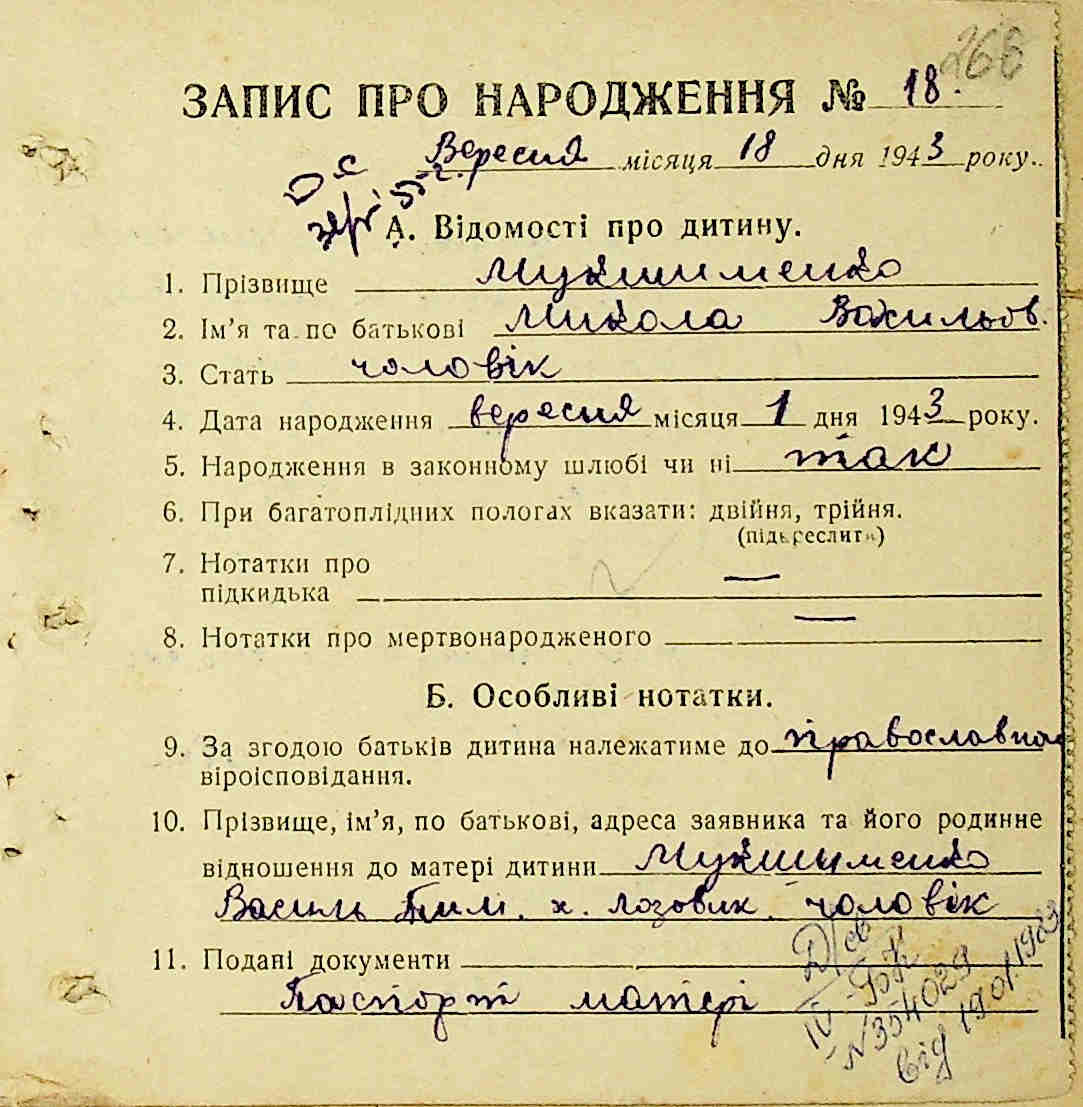 266
ЗАПИС ПРО НАРОДЖЕННЯ № 18.
Вересня місяця 18 дня 1943 року..
А. Відомості про дитину.
1. Прізвище Мукшименко
2. Ім'я та по батькові Микола Васильов.
3. Стать чоловік
4. Дата народження вересня місяця 1 дня 1943 року.
5. Народження в законному шлюбі чи ні так
6. При багатоплідних пологах вказати: двійня, трійня.
(підкреслити)
7. Нотатки про
підкидька —
8. Нотатки про мертвонародженого —
Б. Особливі нотатки.
9. За згодою батьків дитина належатиме до православна
віроісповідання.
10. Прізвище, ім'я, по батькові, адреса заявника та його родинне
відношення до матері дитини Мукшименко
Василь Тим. х. Лозовик. чоловік
11. Подані документи
Паспорт матері
Д/св
IV-БК
N354029
від 19.01.1983